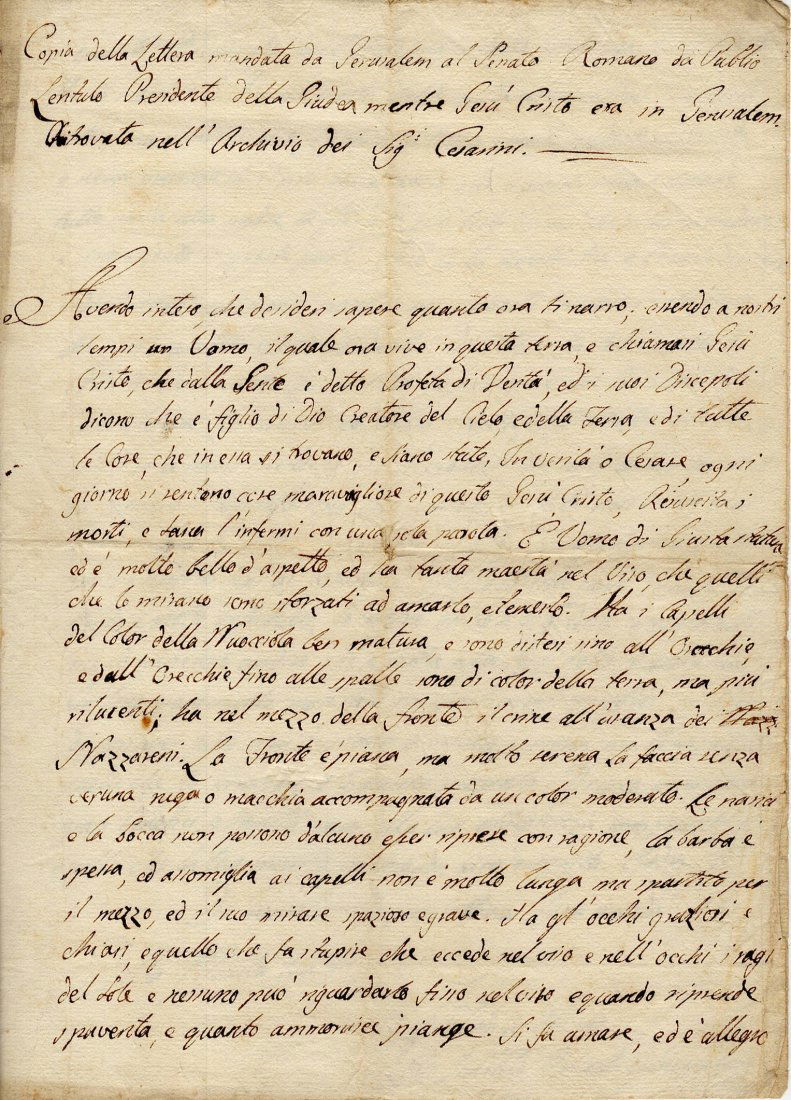 Copia della Lettera mandata da Gerusalem al Senato Romano da Publio
Lentulo Presidente della Giudea mentre Gesù Cristo era in Gerusalem.
Ritrovata nell' Archivio dei Sig.ri Cesarini.
Avendo inteso, che desideri sapere quanto ora ti narro, essendo a nostri
tempi un Uomo, il quale ora vive in questa terra, e chiamasi Gesù
Cristo, che dalla Gente è detto Profeta di Verità, ed i suoi Discepoli
dicono che è figlio di Dio Creatore del Cielo, e della Terra, e di tutte
le Cose, che in essa si trovano, e siano state, In verità o Cesare, ogni
giorno si sentono cose maravigliose di questo Gesù Cristo, Resuscita i
morti, e sana l'infermi con una sola parola. È Uomo di Giusta statura
ed è molto bello d'aspetto, ed ha tanta maestà nel Viso, che quelli
che lo mirano sono sforzati ad amarlo, e temerlo. Ha i Capelli
del Color della Nuocciola ben matura, e sono distesi sino all' Orecchie,
e dall' Orecchie fino alle spalle sono di color della terra, ma più
rilucenti; ha nel mezzo della fronte il crine all'usanza dei
Nazzareni. La Fronte è piana, ma molto serena la faccia senza
veruna ruga o macchia accompagnata da un color moderato. Le narici
e la Bocca non possono d'alcuno esser riprese con ragione, la barba è
spessa, ed assomiglia ai capelli non è molto lunga ma spartito per
il mezzo, ed il suo mirare spazioso e grave. Ha gl' occhi graziosi e
chiari, e quello che fa stupire che eccede nel viso e nell' occhi i ragi
del Sole e nessuno può riguardarlo fino nel viso e quando riprende
spaventa, e quanto ammonisce piange. Si fa amare, ed è allegro